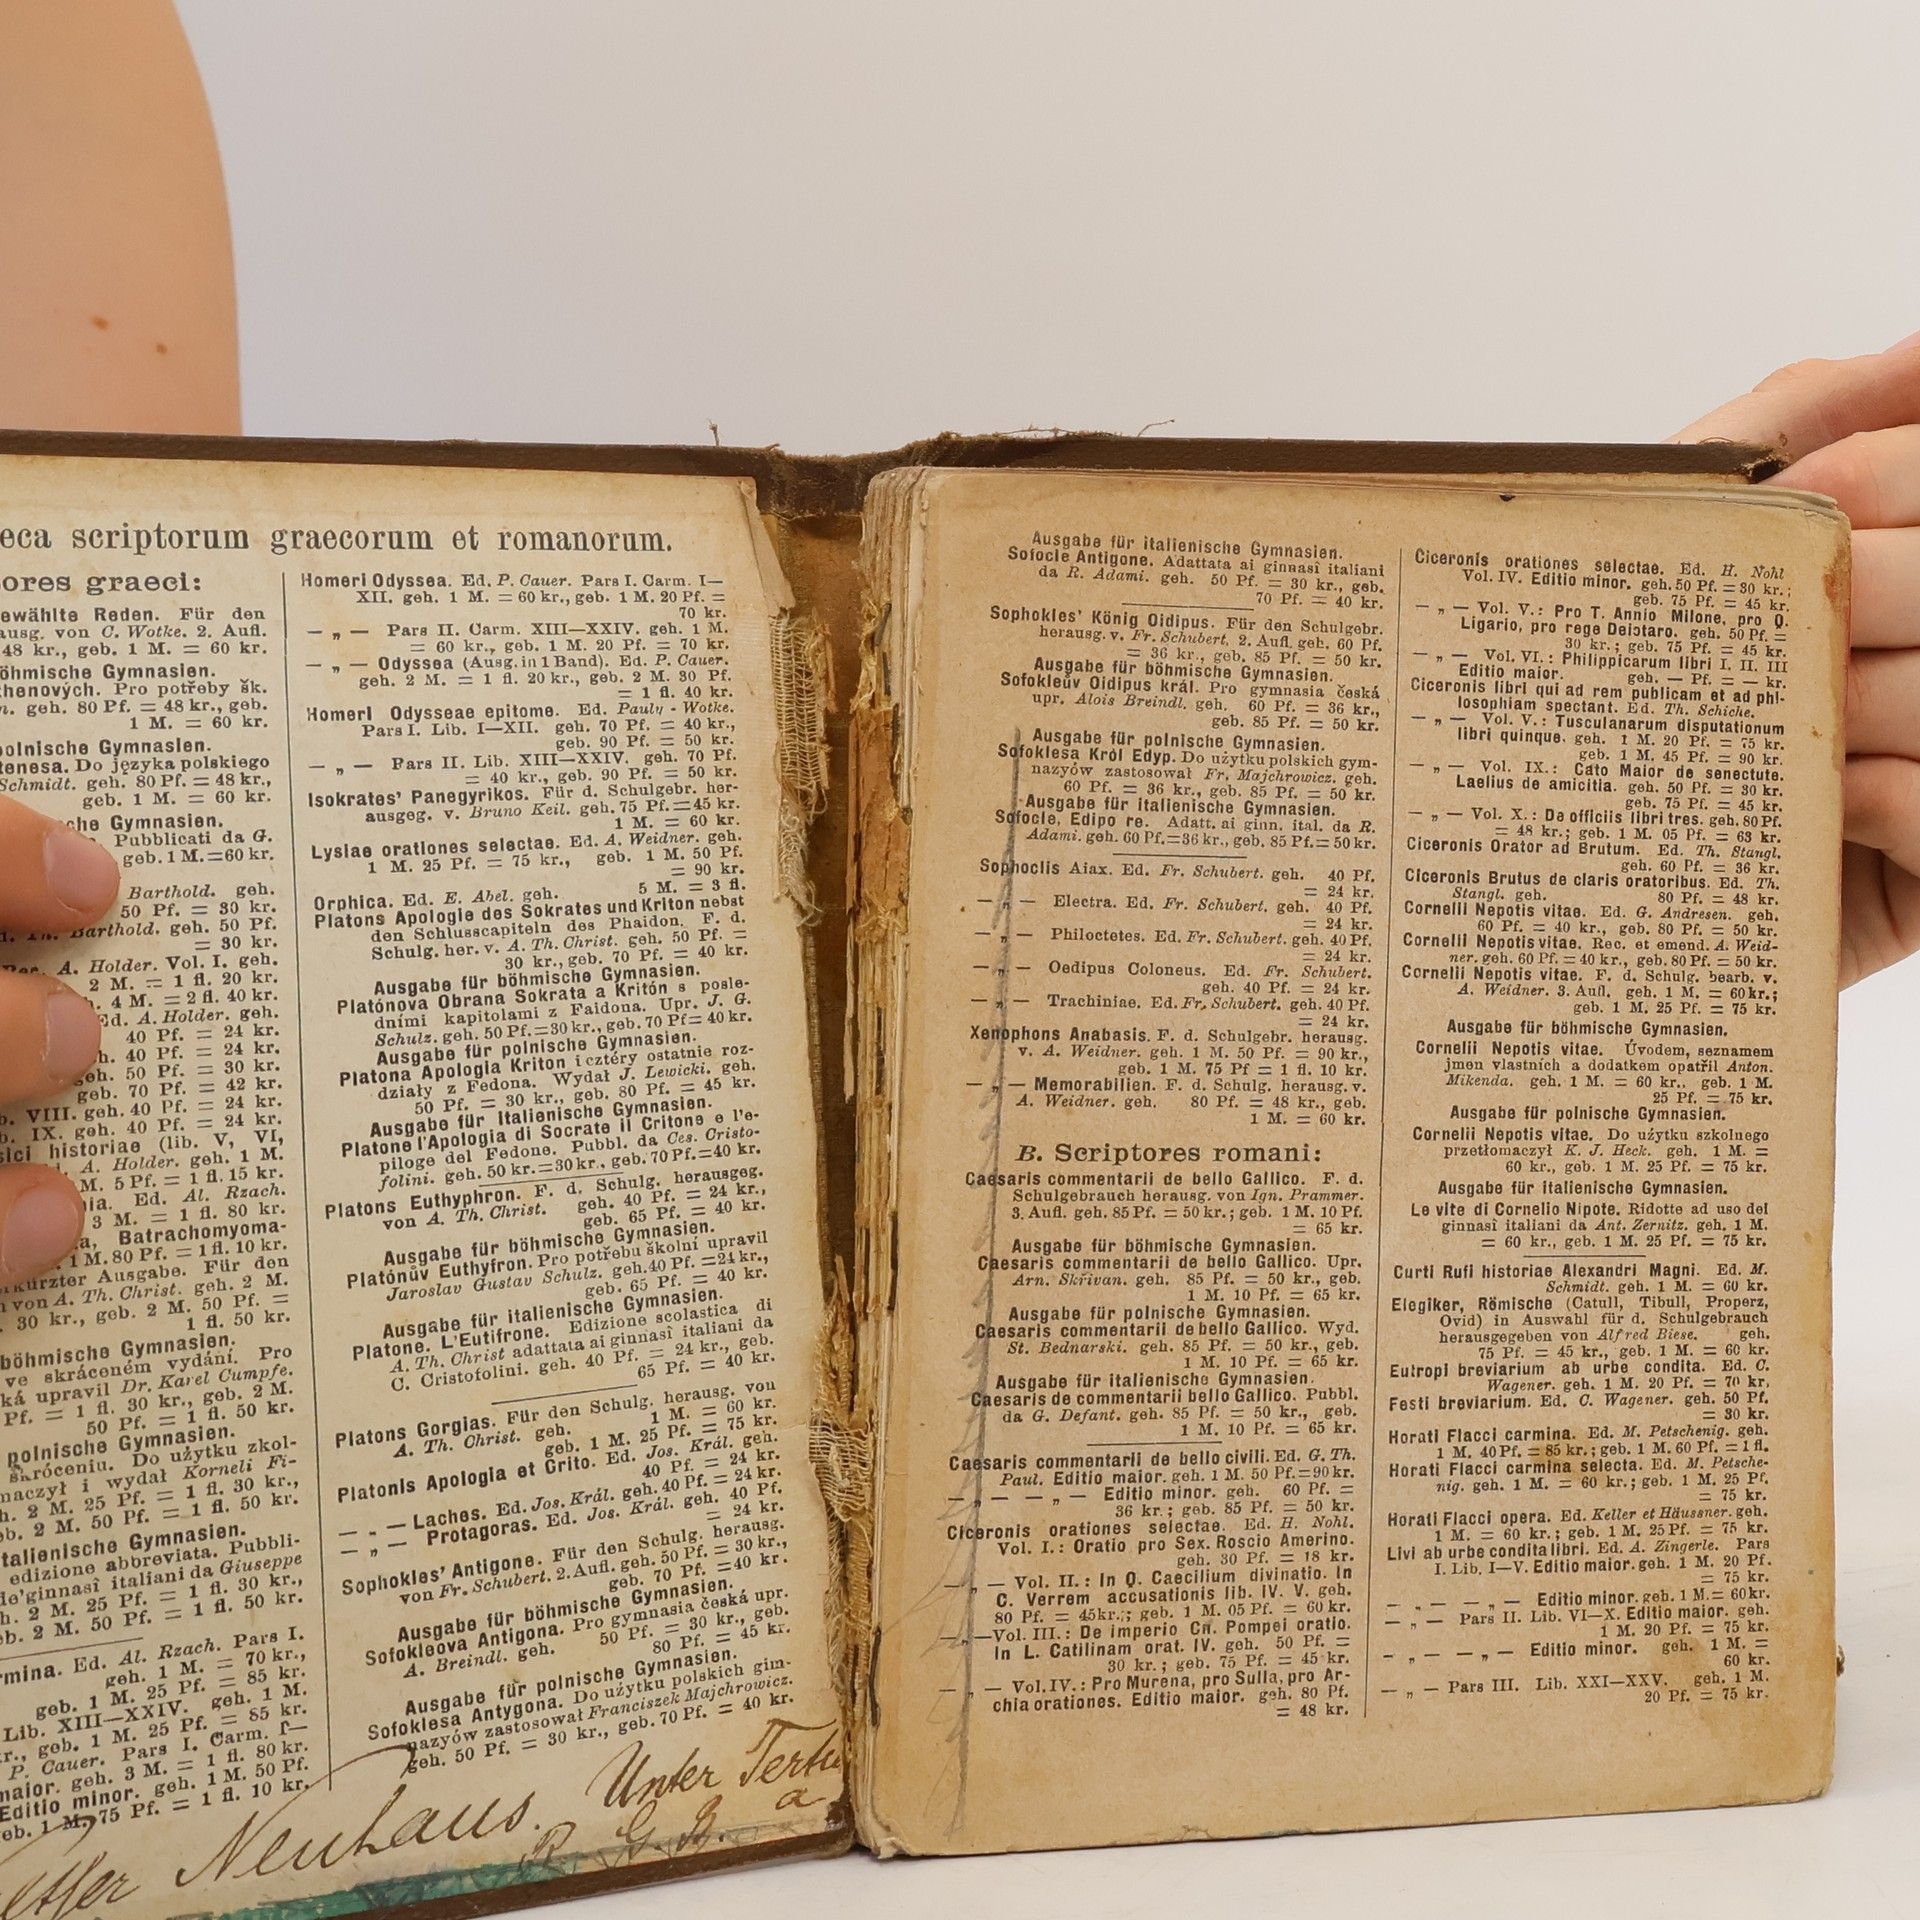 eca scriptorum graecorum et romanorum.
ores graeci:
ewählte Reden. Für den
ausg. von C. Wotke. 2. Aufl.
48 kr., geb. 1 M. = 60 kr.
öhmische Gymnasien.
thenových. Pro potřeby šk.
n. geh. 80 Pf. = 48 kr., geb.
1 M. = 60 kr.
polnische Gymnasien.
tenesa. Do języka polskiego
Schmidt. geh. 80 Pf. = 48 kr.,
geb. 1 M. = 60 kr.
che Gymnasien.
Pubblicati da G.
geb. 1 M. = 60 kr.
Barthold. geh.
50 Pf. = 30 kr.
Barthold. geh. 50 Pf.
= 30 kr.
A. Holder. Vol. I. geh.
2 M. = 1 fl. 20 kr.
4 M. = 2 fl. 40 kr.
Ed. A. Holder. geh.
40 Pf. = 24 kr.
h. 40 Pf. = 24 kr.
geh. 50 Pf. = 30 kr.
geb. 70 Pf. = 42 kr.
b. VIII. geh. 40 Pf. = 24 kr.
b. IX. geh. 40 Pf. = 24 kr.
sici historiae (lib. V, VI,
A. Holder. geh. 1 M.
M. 5 Pf. = 1 fl. 15 kr.
Ed. Al. Rzach.
3 M. = 1 fl. 80 kr.
a, Batrachomyoma-
1 M. 80 Pf. = 1 fl. 10 kr.
rkürzter Ausgabe. Für den
von A. Th. Christ. geh. 2 M.
30 kr., geb. 2 M. 50 Pf. =
1 fl. 50 kr.
böhmische Gymnasien.
ve skráceném vydání. Pro
ká upravil Dr. Karel Cumpfe.
Pf. = 1 fl. 30 kr., geb. 2 M.
50 Pf. = 1 fl. 50 kr.
polnische Gymnasien.
skróceniu. Do użytku zkol-
maczył i wydał Korneli Fi-
h. 2 M. 25 Pf. = 1 fl. 30 kr.,
eb. 2 M. 50 Pf. = 1 fl. 50 kr.
talienische Gymnasien.
edizione abbreviata. Pubbli-
de'ginnasî italiani da Giuseppe
h. 2 M. 25 Pf. = 1 fl. 30 kr.,
eb. 2 M. 50 Pf. = 1 fl. 50 kr.
rmina. Ed. Al. Rzach. Pars I.
geh. 1 M. = 70 kr.,
geb. 1 M. 25 Pf. = 85 kr.
Lib. XIII—XXIV. geh. 1 M.
kr., geb. 1 M. 25 Pf. = 85 kr.
P. Cauer. Pars I. Carm. I—
maior. geh. 3 M. = 1 fl. 80 kr.
Editio minor. geh. 1 M. 50 Pf.
eb. 1 M. 75 Pf. = 1 fl. 10 kr.
Homeri Odyssea. Ed. P. Cauer. Pars I. Carm. I—
XII. geh. 1 M. = 60 kr., geb. 1 M. 20 Pf. =
70 kr.
— „ — Pars II. Carm. XIII—XXIV. geh. 1 M.
= 60 kr., geb. 1 M. 20 Pf. = 70 kr.
— „ — Odyssea (Ausg. in 1 Band). Ed. P. Cauer.
geh. 2 M. = 1 fl. 20 kr., geb. 2 M. 30 Pf.
= 1 fl. 40 kr.
Homeri Odysseae epitome. Ed. Pauly - Wotke.
Pars I. Lib. I—XII. geh. 70 Pf. = 40 kr.,
geb. 90 Pf. = 50 kr.
— „ — Pars II. Lib. XIII—XXIV. geh. 70 Pf.
= 40 kr., geb. 90 Pf. = 50 kr.
Isokrates' Panegyrikos. Für d. Schulgebr. her-
ausgeg. v. Bruno Keil. geh. 75 Pf. = 45 kr.
1 M. = 60 kr.
Lysiae orationes selectae. Ed. A. Weidner. geh.
1 M. 25 Pf. = 75 kr., geb. 1 M. 50 Pf.
= 90 kr.
Orphica. Ed. E. Abel. geh. 5 M. = 3 fl.
Platons Apologie des Sokrates und Kriton nebst
den Schlusscapiteln des Phaidon. F. d.
Schulg. her. v. A. Th. Christ. geh. 50 Pf. =
30 kr., geb. 70 Pf. = 40 kr.
Ausgabe für böhmische Gymnasien.
Platónova Obrana Sokrata a Kritón s posle-
dními kapitolami z Faidona. Upr. J. G.
Schulz. geh. 50 Pf. = 30 kr., geb. 70 Pf = 40 kr.
Ausgabe für polnische Gymnasien.
Platona Apologia Kriton i cztéry ostatnie roz-
działy z Fedona. Wydał J. Lewicki. geh.
50 Pf. = 30 kr., geb. 80 Pf. = 45 kr.
Ausgabe für italienische Gymnasien.
Platone l'Apologia di Socrate il Critone e l'e-
piloge del Fedone. Pubbl. da Ces. Cristo-
folini. geh. 50 kr. = 30 kr., geb. 70 Pf. = 40 kr.
Platons Euthyphron. F. d. Schulg. herausgeg.
von A. Th. Christ. geh. 40 Pf. = 24 kr.,
geb. 65 Pf. = 40 kr.
Ausgabe für böhmische Gymnasien.
Platónův Euthyfron. Pro potřebu školní upravil
Jaroslav Gustav Schulz. geh. 40 Pf. = 24 kr.,
geb. 65 Pf. = 40 kr.
Ausgabe für italienische Gymnasien.
Platone. L'Eutifrone. Edizione scolastica di
A. Th. Christ adattata ai ginnasî italiani da
C. Cristofolini. geh. 40 Pf. = 24 kr., geb.
65 Pf. = 40 kr.
Platons Gorgias. Für den Schulg. herausg. von
A. Th. Christ. geh. 1 M. = 60 kr.
geb. 1 M. 25 Pf. = 75 kr.
Platonis Apologia et Crito. Ed. Jos. Král. geh.
40 Pf. = 24 kr.
— „ — Laches. Ed. Jos. Král. geh. 40 Pf. = 24 kr.
— „ — Protagoras. Ed. Jos. Král. geh. 40 Pf.
= 24 kr.
Sophokles' Antigone. Für den Schulg. herausg.
von Fr. Schubert. 2. Aufl. geh. 50 Pf. = 30 kr.,
geb. 70 Pf. = 40 kr.
Ausgabe für böhmische Gymnasien.
Sofokleova Antigona. Pro gymnasia česká upr.
A. Breindl. geh. 50 Pf. = 30 kr., geb.
80 Pf. = 45 kr.
Ausgabe für polnische Gymnasien.
Sofoklesa Antygona. Do użytku polskich gim-
nazyów zastosował Franciszek Majchrowicz.
geh. 50 Pf. = 30 kr., geb. 70 Pf. = 40 kr.
Neuhaus. Unter Tertia
a
R. G. B.
Ausgabe für italienische Gymnasien.
Sofocle Antigone. Adattata ai ginnasî italiani
da R. Adami. geh. 50 Pf. = 30 kr., geb.
70 Pf. = 40 kr.
Sophokles' König Oidipus. Für den Schulgebr.
herausg. v. Fr. Schubert. 2. Aufl. geh. 60 Pf.
= 36 kr., geb. 85 Pf. = 50 kr.
Ausgabe für böhmische Gymnasien.
Sofokleův Oidipus král. Pro gymnasia česká
upr. Alois Breindl. geh. 60 Pf. = 36 kr.,
geb. 85 Pf. = 50 kr.
Ausgabe für polnische Gymnasien.
Sofoklesa Król Edyp. Do użytku polskich gym-
nazyów zastosował Fr. Majchrowicz. geh.
60 Pf. = 36 kr., geb. 85 Pf. = 50 kr.
Ausgabe für italienische Gymnasien.
Sofocle, Edipo re. Adatt. ai ginn. ital. da R.
Adami. geh. 60 Pf. = 36 kr., geb. 85 Pf. = 50 kr.
Sophoclis Aiax. Ed. Fr. Schubert. geh. 40 Pf.
= 24 kr.
— „ — Electra. Ed. Fr. Schubert. geh. 40 Pf.
= 24 kr.
— „ — Philoctetes. Ed. Fr. Schubert. geh. 40 Pf.
= 24 kr.
— „ — Oedipus Coloneus. Ed. Fr. Schubert.
geh. 40 Pf. = 24 kr.
— „ — Trachiniae. Ed. Fr. Schubert. geh. 40 Pf.
= 24 kr.
Xenophons Anabasis. F. d. Schulgebr. herausg.
v. A. Weidner. geh. 1 M. 50 Pf. = 90 kr.,
geb. 1 M. 75 Pf = 1 fl. 10 kr.
— „ — Memorabilien. F. d. Schulg. herausg. v.
A. Weidner. geh. 80 Pf. = 48 kr., geb.
1 M. = 60 kr.
B. Scriptores romani:
Caesaris commentarii de bello Gallico. F. d.
Schulgebrauch herausg. von Ign. Prammer.
3. Aufl. geh. 85 Pf. = 50 kr.; geb. 1 M. 10 Pf.
= 65 kr.
Ausgabe für böhmische Gymnasien.
Caesaris commentarii de bello Gallico. Upr.
Arn. Skřivan. geh. 85 Pf. = 50 kr., geb.
1 M. 10 Pf. = 65 kr.
Ausgabe für polnische Gymnasien.
Caesaris commentarii de bello Gallico. Wyd.
St. Bednarski. geh. 85 Pf. = 50 kr., geb.
1 M. 10 Pf. = 65 kr.
Ausgabe für italienische Gymnasien.
Caesaris de commentarii bello Gallico. Pubbl.
da G. Defant. geh. 85 Pf. = 50 kr., geb.
1 M. 10 Pf. = 65 kr.
Caesaris commentarii de bello civili. Ed. G. Th.
Paul. Editio maior. geh. 1 M. 50 Pf. = 90 kr.
— „ — „ — Editio minor. geh. 60 Pf. =
36 kr.; geb. 85 Pf. = 50 kr.
Ciceronis orationes selectae. Ed. H. Nohl.
Vol. I.: Oratio pro Sex. Roscio Amerino.
geh. 30 Pf. = 18 kr.
— „ — Vol. II.: In Q. Caecilium divinatio. In
C. Verrem accusationis lib. IV. V. geh.
80 Pf. = 45 kr.; geb. 1 M. 05 Pf. = 60 kr.
— „ — Vol. III.: De imperio Cn. Pompei oratio.
In L. Catilinam orat. IV. geh. 50 Pf. =
30 kr.; geb. 75 Pf. = 45 kr.
— „ — Vol. IV.: Pro Murena, pro Sulla, pro Ar-
chia orationes. Editio maior. geh. 80 Pf.
= 48 kr.
Ciceronis orationes selectae. Ed. H. Nohl
Vol. IV. Editio minor. geh. 50 Pf. = 30 kr.;
geb. 75 Pf. = 45 kr.
— „ — Vol. V.: Pro T. Annio Milone, pro Q.
Ligario, pro rege Deiotaro. geh. 50 Pf. =
30 kr.; geb. 75 Pf. = 45 kr.
— „ — Vol. VI.: Philippicarum libri I. II. III
Editio maior. geh. — Pf. = — kr.
Ciceronis libri qui ad rem publicam et ad phi-
losophiam spectant. Ed. Th. Schiche.
— „ — Vol. V.: Tusculanarum disputationum
libri quinque. geh. 1 M. 20 Pf. = 75 kr.
geb. 1 M. 45 Pf. = 90 kr.
— „ — Vol. IX.: Cato Maior de senectute.
Laelius de amicitia. geh. 50 Pf. = 30 kr.
geb. 75 Pf. = 45 kr.
— „ — Vol. X.: De officiis libri tres. geh. 80 Pf.
= 48 kr.; geb. 1 M. 05 Pf. = 63 kr.
Ciceronis Orator ad Brutum. Ed. Th. Stangl.
geh. 60 Pf. = 36 kr.
Ciceronis Brutus de claris oratoribus. Ed. Th.
Stangl. geh. 80 Pf. = 48 kr.
Cornelii Nepotis vitae. Ed. G. Andresen. geh.
60 Pf. = 40 kr., geb. 80 Pf. = 50 kr.
Cornelii Nepotis vitae. Rec. et emend. A. Weid-
ner. geh. 60 Pf. = 40 kr., geb. 80 Pf. = 50 kr.
Cornelii Nepotis vitae. F. d. Schulg. bearb. v.
A. Weidner. 3. Aufl. geh. 1 M. = 60 kr.;
geb. 1 M. 25 Pf. = 75 kr.
Ausgabe für böhmische Gymnasien.
Cornelii Nepotis vitae. Úvodem, seznamem
jmen vlastních a dodatkem opatřil Anton.
Mikenda. geh. 1 M. = 60 kr., geb. 1 M.
25 Pf. = 75 kr.
Ausgabe für polnische Gymnasien.
Cornelii Nepotis vitae. Do użytku szkolnego
przetłomaczył K. J. Heck. geh. 1 M. =
60 kr., geb. 1 M. 25 Pf. = 75 kr.
Ausgabe für italienische Gymnasien.
Le vite di Cornelio Nipote. Ridotte ad uso dei
ginnasî italiani da Ant. Zernitz. geh. 1 M.
= 60 kr., geb. 1 M. 25 Pf. = 75 kr.
Curti Rufi historiae Alexandri Magni. Ed. M.
Schmidt. geh. 1 M. = 60 kr.
Elegiker, Römische (Catull, Tibull, Properz,
Ovid) in Auswahl für d. Schulgebrauch
herausgegeben von Alfred Biese. geh.
75 Pf. = 45 kr., geb. 1 M. = 60 kr.
Eutropi breviarium ab urbe condita. Ed. C.
Wagener. geh. 1 M. 20 Pf. = 70 kr.
Festi breviarium. Ed. C. Wagener. geh. 50 Pf.
= 30 kr.
Horati Flacci carmina. Ed. M. Petschenig. geh.
1 M. 40 Pf. = 85 kr.; geb. 1 M. 60 Pf. = 1 fl.
Horati Flacci carmina selecta. Ed. M. Petsche-
nig. geh. 1 M. = 60 kr.; geb. 1 M. 25 Pf.
= 75 kr.
Horati Flacci opera. Ed. Keller et Häussner. geh.
1 M. = 60 kr.; geb. 1 M. 25 Pf. = 75 kr.
Livi ab urbe condita libri. Ed. A. Zingerle. Pars
I. Lib. I—V. Editio maior. geh. 1 M. 20 Pf.
= 75 kr.
— „ — „ — Editio minor. geb. 1 M. = 60 kr.
— „ — Pars II. Lib. VI—X. Editio maior. geh.
1 M. 20 Pf. = 75 kr.
— „ — „ — Editio minor. geh. 1 M. =
60 kr.
— „ — Pars III. Lib. XXI—XXV. geh. 1 M.
20 Pf. = 75 kr.